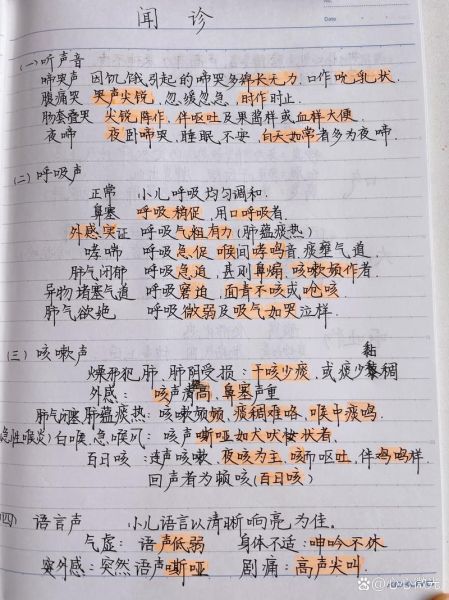 闻诊
No.
Date
(一)听声音
啼哭声 因饥饿引起的啼哭多绵长无力,口作吮乳状.
腹痛哭 哭声尖锐,忽缓忽急,时作时止.
肠套叠哭 尖锐阵作,伴呕吐及果酱样或血样大便.
夜啼 夜卧啼哭,睡眠不安,白天如常者多为夜啼.
(二)呼吸声
正常 小儿呼吸均匀调和.
鼻塞 呼吸稍促,用口呼吸者.
外感实证 呼吸气粗有力(肺蕴痰热)
哮喘 呼吸急促 喉间哮鸣音,痰壅气道.
肺气闭郁 呼吸急迫,甚则鼻煽,咳嗽频作者.
异物堵塞气道 呼吸窘迫,面青不咳或呛咳.
肺气欲绝 呼吸微弱及吸气如哭泣样.
(三)咳嗽声
黏
燥邪犯肺,肺阴受损:干咳少痰,或痰少稠
外感:咳声清高,鼻塞声重
肺气闭塞 肺蕴痰热:咳嗽频频,痰稠难咯,喉中痰鸣.
(急性喉炎)白喉、急喉风:咳声嘶哑如犬吠状者、
百日咳:连声咳嗽,夜咳为主,咳而呕吐,伴鸡鸣样.
回声者为顿咳(百日咳)
(四)语言声 小儿语言以清晰响亮为佳.
气虚:语声低弱 身体不适:呻吟不休
实外感:突然语声嘶哑 剧痛:高声尖叫.